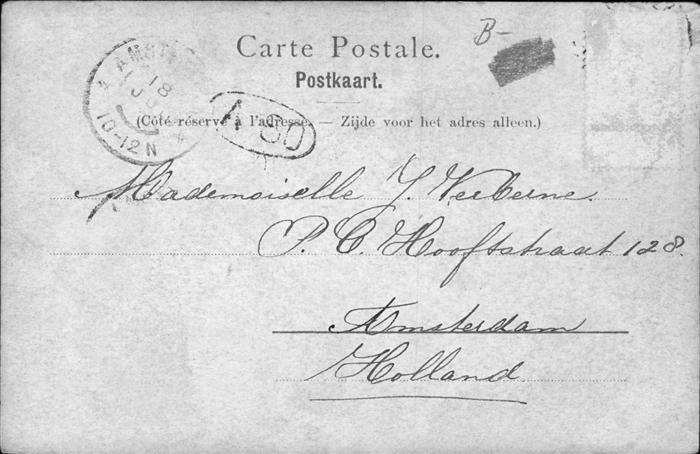 B-
Carte Postale.
Postkaart.
(Côté réservé à l'adresse. — Zijde voor het adres alleen.)
18
10-12 N
Mademoiselle J. Verberne.
P. C. Hooftstraat 128.
Amsterdam
Holland